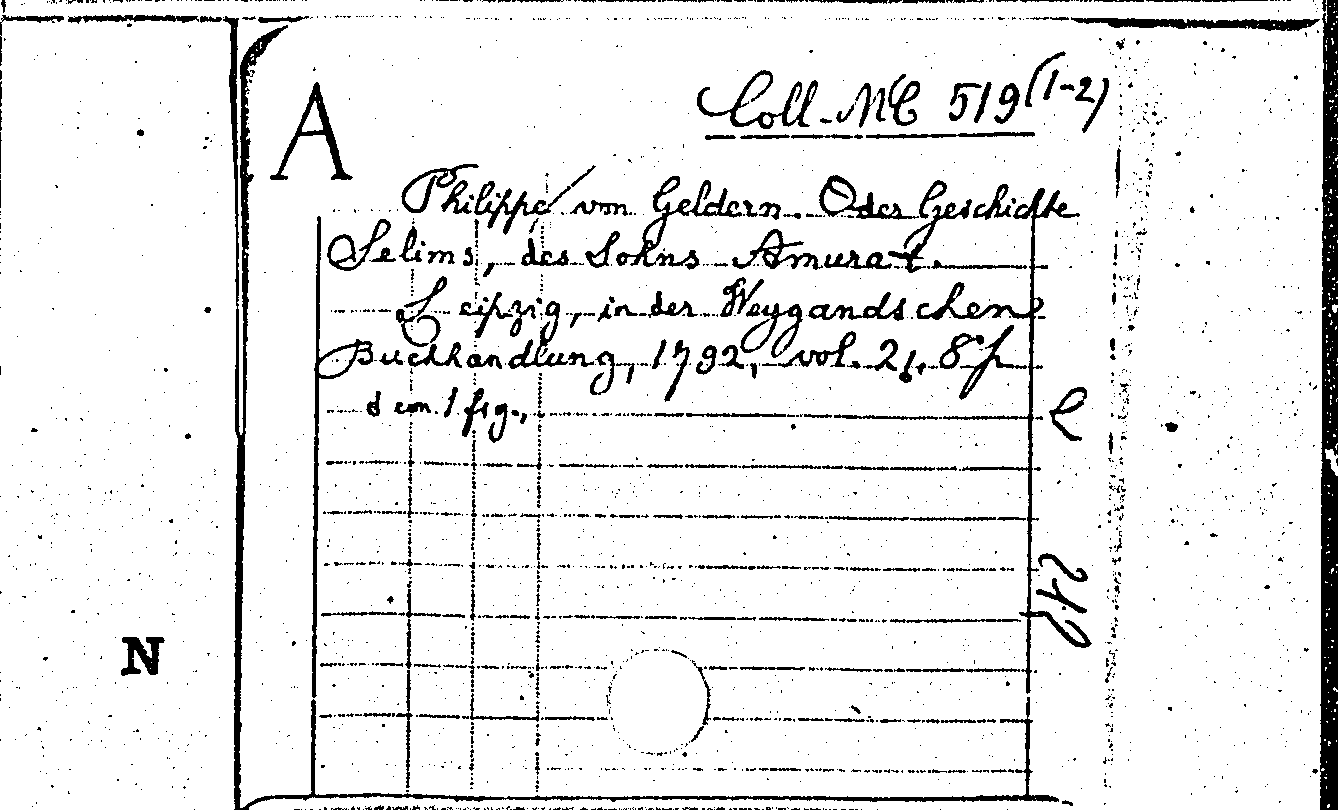 A
Coll. MC 519 (1-2)
Philippe von Geldern. Oder Geschichte
Selims, des Sohns Amurat.
Leipzig, in der Weygandschen
Buchhandlung, 1792, vol. 2, 8°p
con 1 fig.,
N